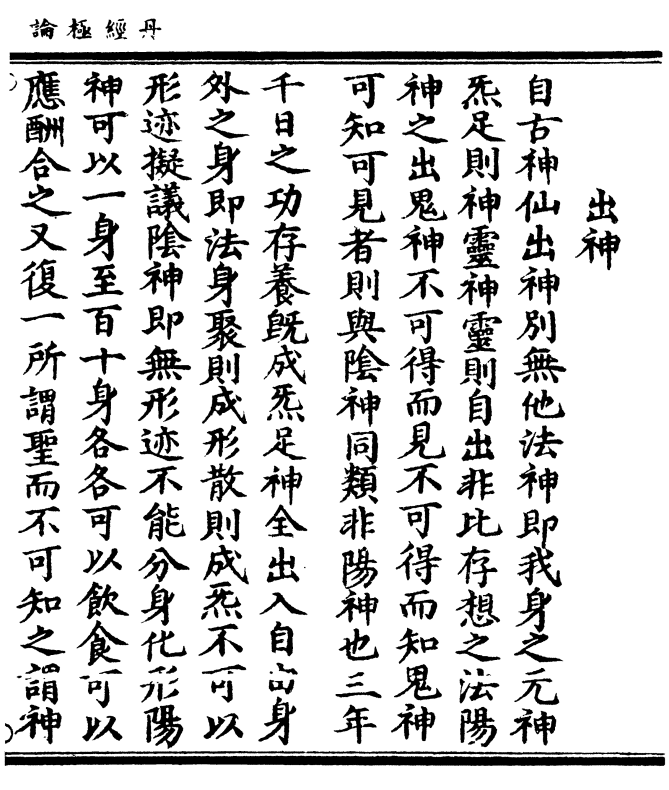 丹經極論
出神
自古神仙出神別無他法神即我身之元神
炁足則神靈神靈則自出非比存想之法陽
神之出鬼神不可得而見不可得而知鬼神
可知可見者則與陰神同類非陽神也三年
千日之功存養既成炁足神全出入自由身
外之身即法身聚則成形散則成炁不可以
形迹擬議陰神即無形迹不能分身化形陽
神可以一身至百十身各各可以飲食可以
應酬合之又復一所謂聖而不可知之謂神